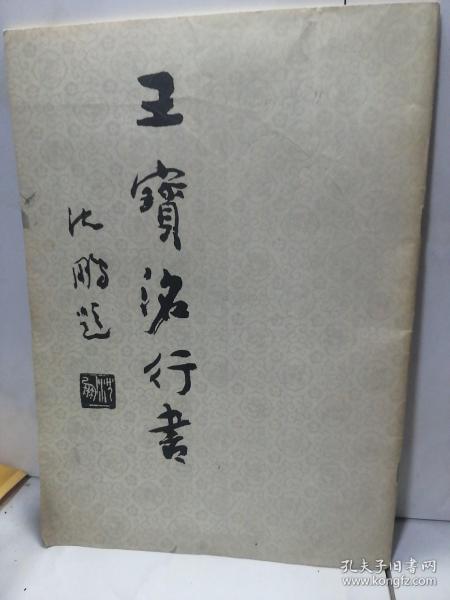 王寶洺行書
沈鵬題
孔夫子旧书网
www.kongfz.com